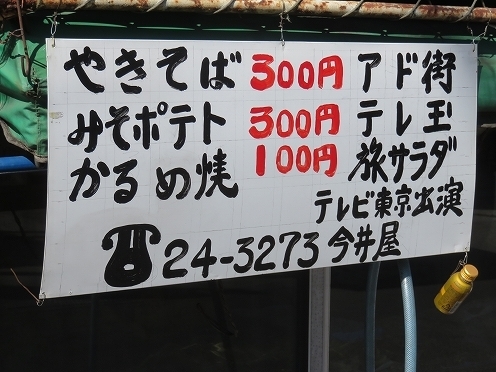 やきそば 300円 アド街
みそポテト 300円 テレ玉
かるめ焼 100円 旅サラダ
テレビ東京出演
☎24-3273 今井屋